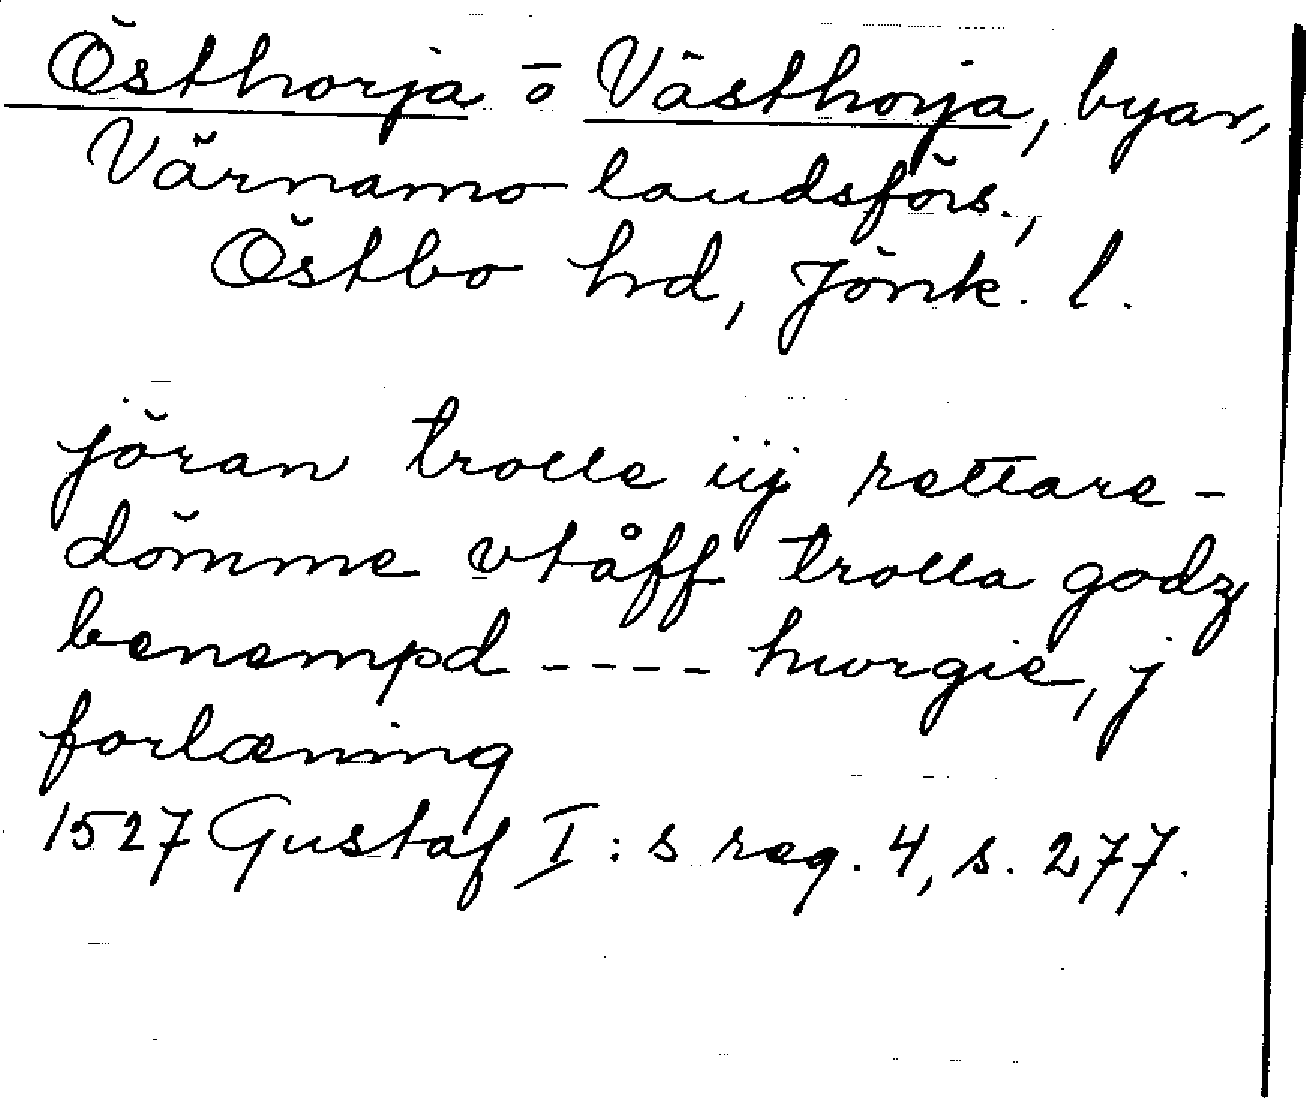 Östhorja o Västhorja, byar,
Värnamo landsförs.,
Östbo hd, Jönk. l.
jöran trolle iij rettare-
dömme vtåff trolla godz
benempd ---- hworgie, j
forlæning
1527 Gustaf I:s reg. 4, s. 277.